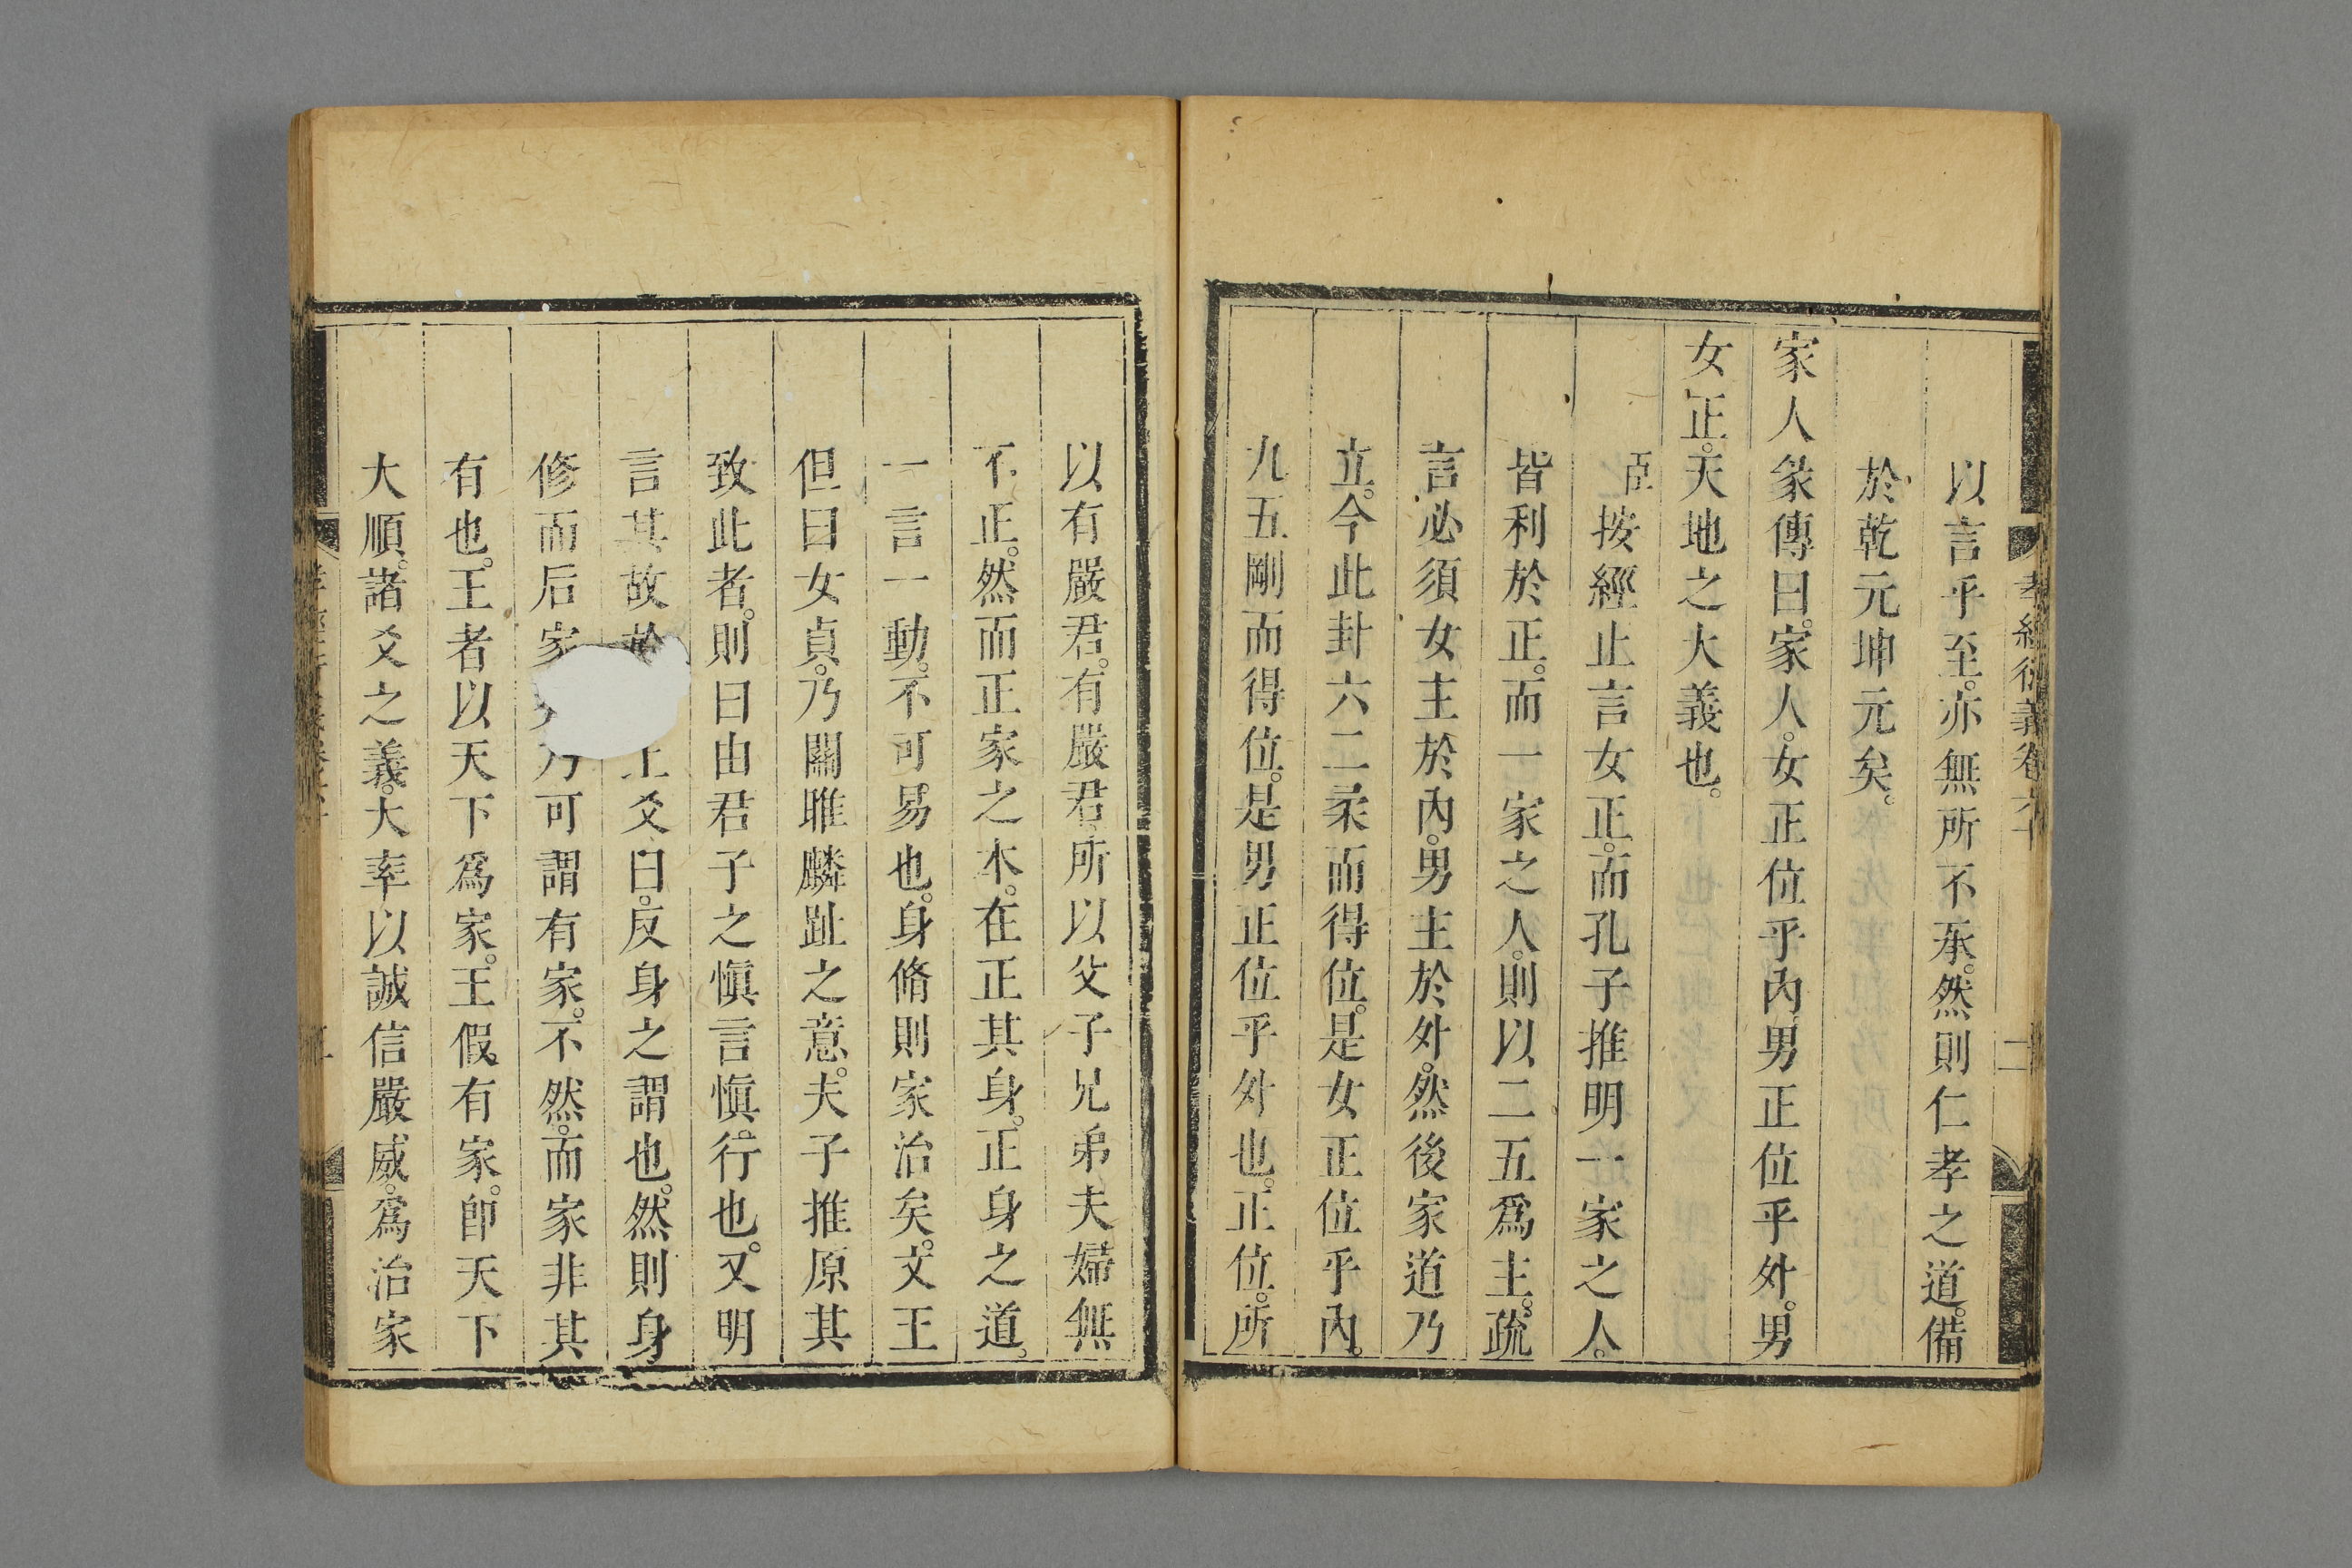 孝經衍義卷六十
二
以言乎至。亦無所不承。然則仁孝之道。備
於乾元坤元矣。
家人彖傳曰。家人。女正位乎內。男正位乎外。男
女正。天地之大義也。
臣按經止言女正。而孔子推明一家之人。
皆利於正。而一家之人。則以二五爲主。疏
言必須女主於內。男主於外。然後家道乃
立。今此卦六二柔而得位。是女正位乎內。
九五剛而得位。是男正位乎外也。正位。所
以有嚴君。有嚴君。所以父子兄弟夫婦無
不正。然而正家之本。在正其身。正身之道。
一言一動。不可易也。身脩則家治矣。文王
但曰女貞。乃關雎麟趾之意。夫子推原其
致此者。則曰由君子之愼言愼行也。又明
言其故於上爻曰。反身之謂也。然則身
修而后家乃可謂有家。不然。而家非其
有也。王者以天下爲家。王假有家。卽天下
大順。諸爻之義。大率以誠信嚴威。爲治家